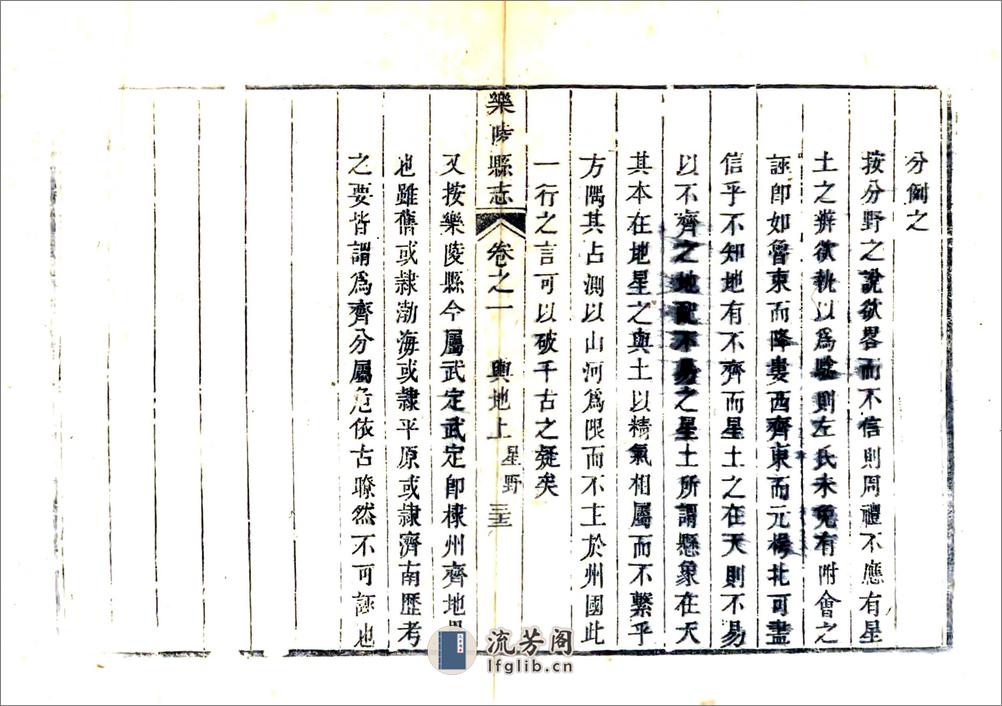 分例之
按分野之說欲畧而不信則周禮不應有星
土之辨欲執以爲驗則左氏未免有附會之
誣卽如魯東而降婁西齊東而元枵北可盡
信乎不知地有不齊而星土之在天則不易
以不齊之地配不易之星土所謂懸象在天
其本在地星之與土以精氣相屬而不繫乎
方隅其占測以山河爲限而不主於州國此
一行之言可以破千古之疑矣
樂陵縣志 卷之一 輿地上 星野
又按樂陵縣今屬武定武定卽棣州齊地
也雖舊或隸渤海或隸平原或隸濟南歷考
之要皆謂爲齊分屬危依古瞭然不可誣也
流芳阁
lfglib.cn